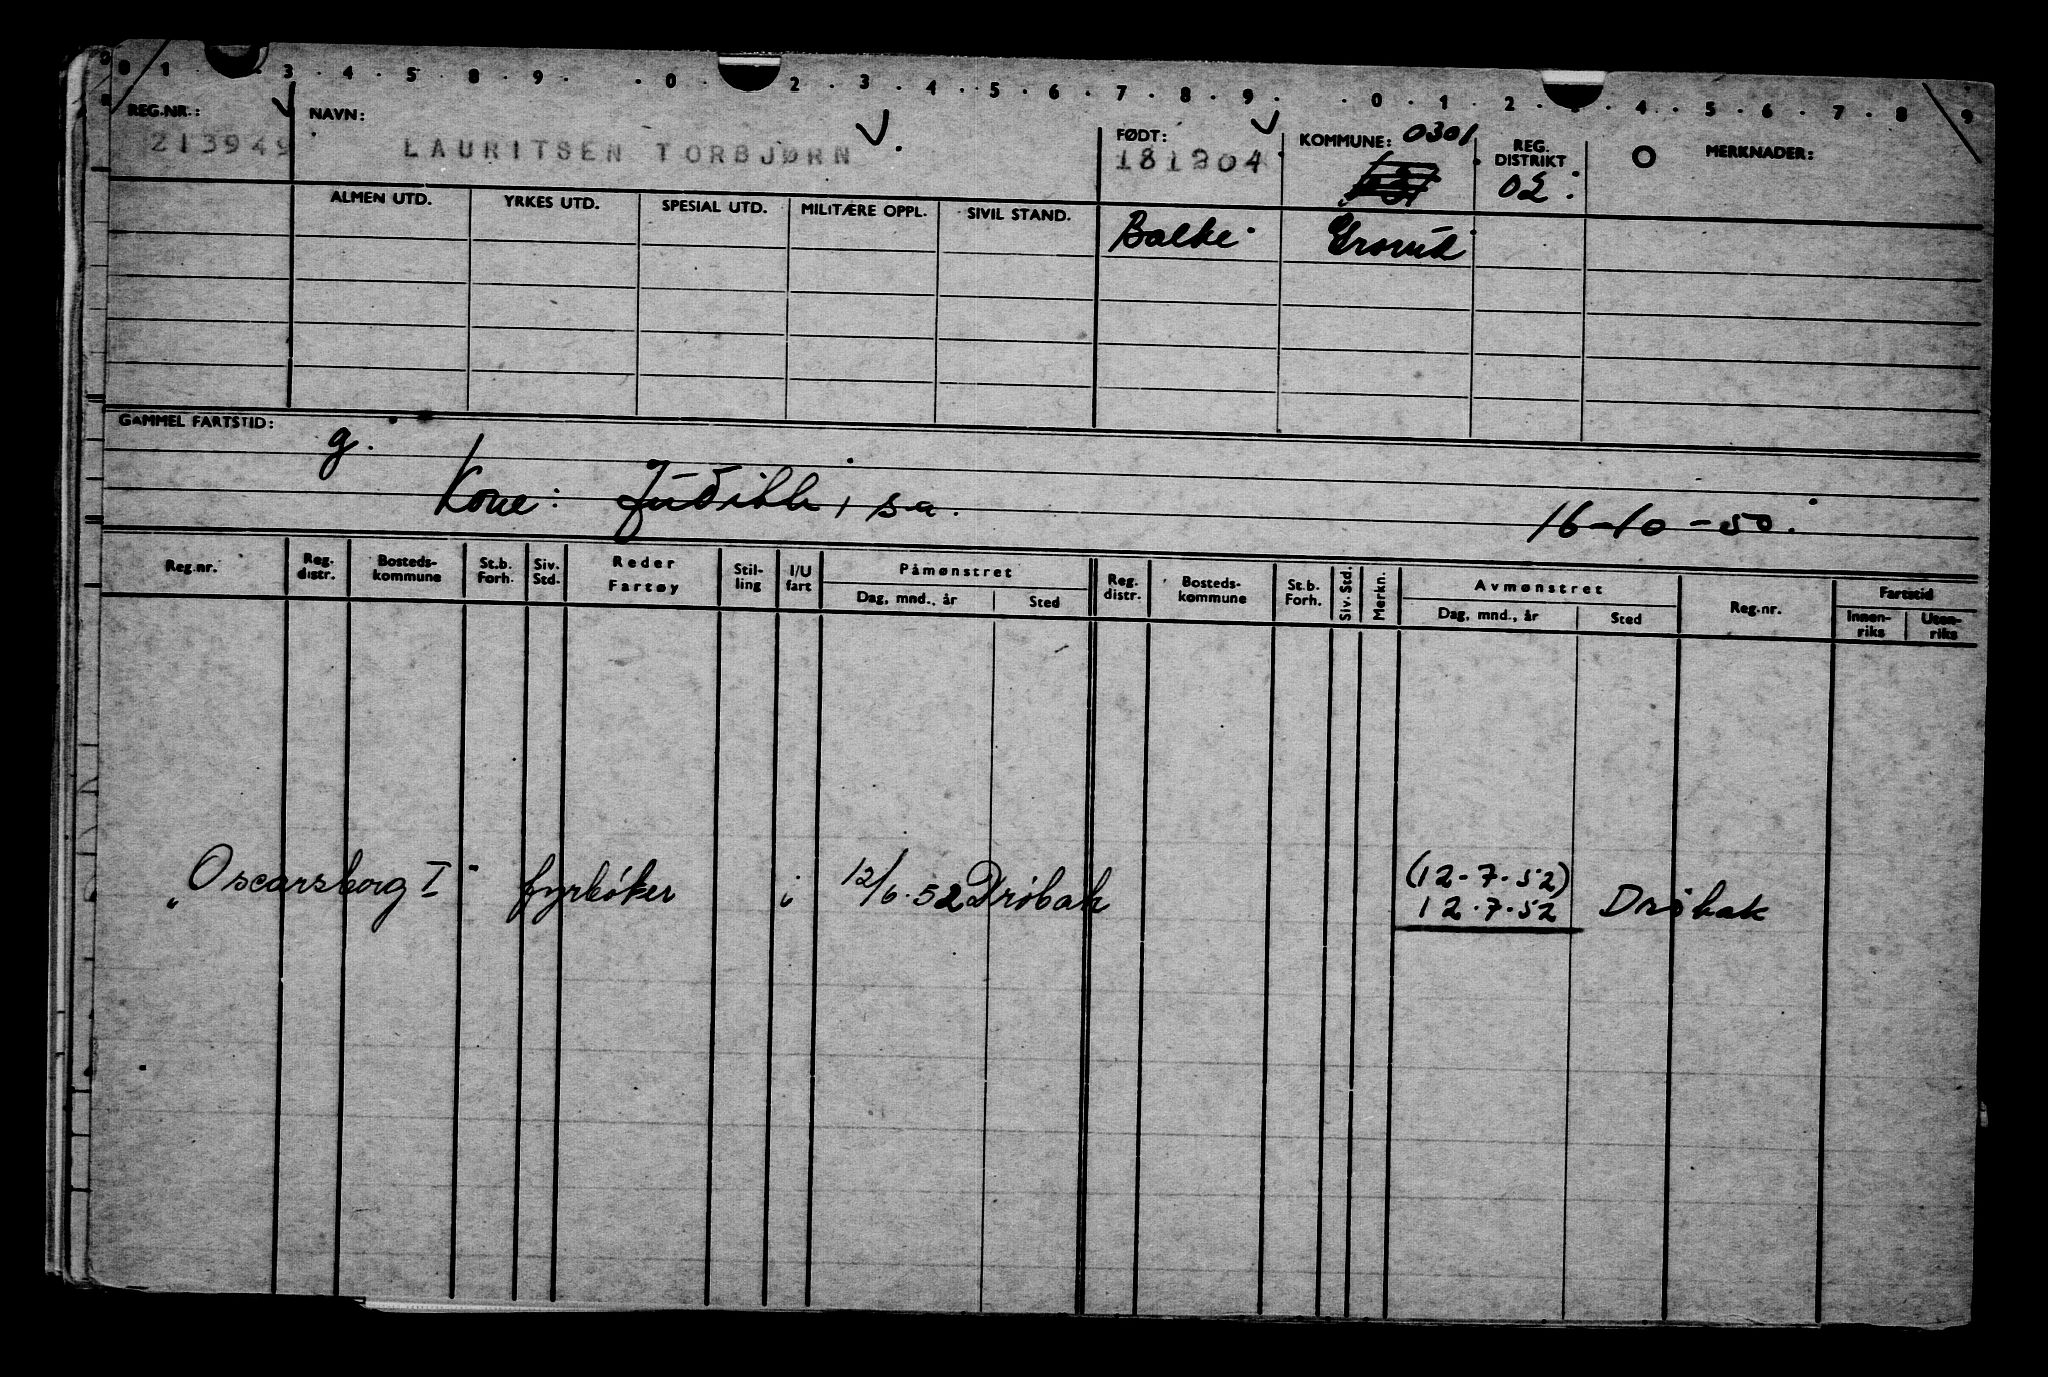 0 1 . . . 3 . 4 . 5 . 8 . 9 . . 0 . . 2 . 3 . 4 . 5 . 6 . 7 . 8 . 9 . . 0 . 1 . 2 . . 4 . 5 . 6 . 7 . 8 9
REG.NR.: NAVN: FØDT: KOMMUNE: 0301 REG. DISTRIKT MERKNADER:
213949 LAURITSEN TORBJØRN 02
ALMEN UTD. YRKES UTD. SPESIAL UTD. MILITÆRE OPPL. SIVIL STAND.
Grorud
GAMMEL FARTSTID: g.
Kone: Judith, s.a. 16-10-50.
Reg.nr. Reg. distr. Bosteds- kommune St.b. Forh. Siv. Std. Reder Fartøy Stil- ling I/U fart Påmønstret Reg. distr. Bosteds- kommune St.b. Forh. Siv. Std. Merkn. Avmønstret Reg.nr. Fartstid
Dag, mnd., år Sted Dag, mnd., år Sted Innen- riks Uten- riks
(12-7-52)
"Oscarsborg I" fyrbøker i 12/6.52 Drøbak 12.7.52 Drøbak